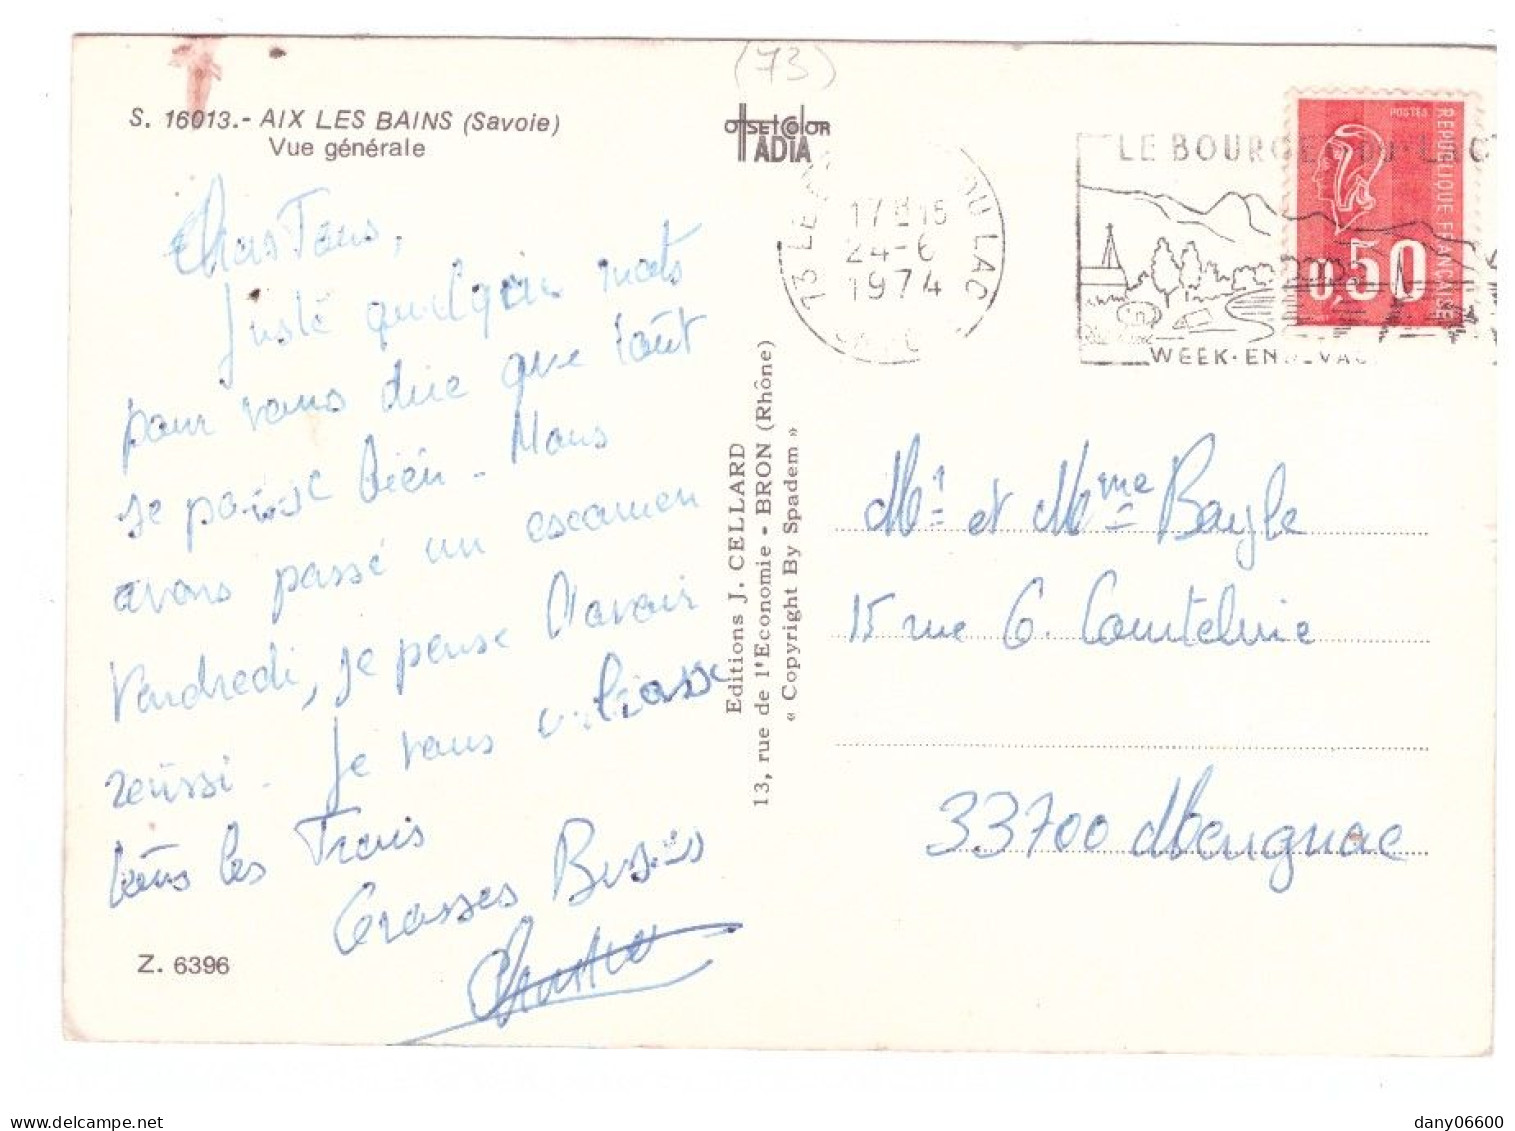 (73)
S. 16013.- AIX LES BAINS (Savoie)
Vue générale
OFFSETCOLOR
IADIA
LE BOURGET DU LAC
WEEK-END VAC
73 LE DU LAC
17H15
24-6
1974
REPUBLIQUE FRANÇAISE
POSTES
0,50
Chers Tous,
Juste quelques mots
pour vous dire que tout
se passe bien - Nous
avons passé un examen
Vendredi, je pense l'avoir
réussi. Je vous embrasse
tous les Trois
Grosses Bises
Editions J. CELLARD
13, rue de l'Economie - BRON (Rhône)
« Copyright By Spadem »
Mr et Mme Bayle
15 rue G. Courteline
33700 Merignac
Z. 6396
dany06600